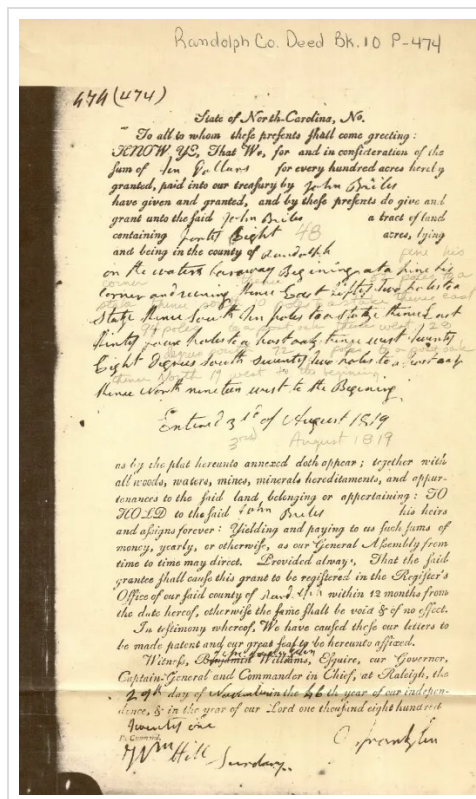 Randolph Co. Deed Bk. 10 P-474
474 (474)
State of North-Carolina, No.
To all to whom these presents shall come greeting:
KNOW YE, That We, for and in consideration of the
sum of Ten Dollars for every hundred acres hereby
granted, paid into our treasury by John Briles
have given and granted, and by these presents do give and
grant unto the said John Briles a tract of land
containing forty Eight 48 acres, lying
and being in the county of Randolph
pine his
on the waters Caraway Beginning at a pine his
corner
corner and runing thence East fifty two poles to a
Stake thence South ten poles to a Stake thence East
94 poles to a post oak thence west 28
Ninty four poles to a post oak thence west twenty
Eight degrees South seventy two poles to a post oak
thence North 19 west to the beginning
thence North nineteen west to the Begining
Entered 3rd of August 1819
3rd August 1819
as by the plat hereunto annexed doth appear; together with
all woods, waters, mines, minerals hereditaments, and appur-
tenances to the said land, belonging or appertaining: TO
HOLD to the said John Briles his heirs
and assigns forever: Yielding and paying to us such sums of
money, yearly, or otherwise, as our General Assembly from
time to time may direct. Provided always, That the said
grantee shall cause this grant to be registered in the Register's
Office of our said county of Randolph within 12 months from
the date hereof, otherwise the same shall be void & of no effect.
In testimony whereof, We have caused these our letters to
be made patent and our great seal to be hereunto affixed.
Witness, Benjamin Williams, Esquire, our Governor,
Captain-General and Commander in Chief, at Raleigh, the
29th day of the 46th year of our indepen-
dence, & in the year of our Lord one thousand eight hundred
twenty one
By Command,
Wm Hill
J Franklin